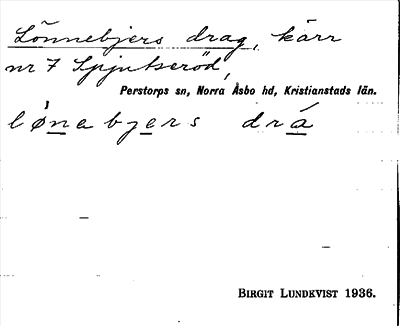 Lönnebjers drag, kärr
nr 7 Spjutseröd,
Perstorps sn, Norra Åsbo hd, Kristianstads län.
lø̀nebjers drá
BIRGIT LUNDKVIST 1936.